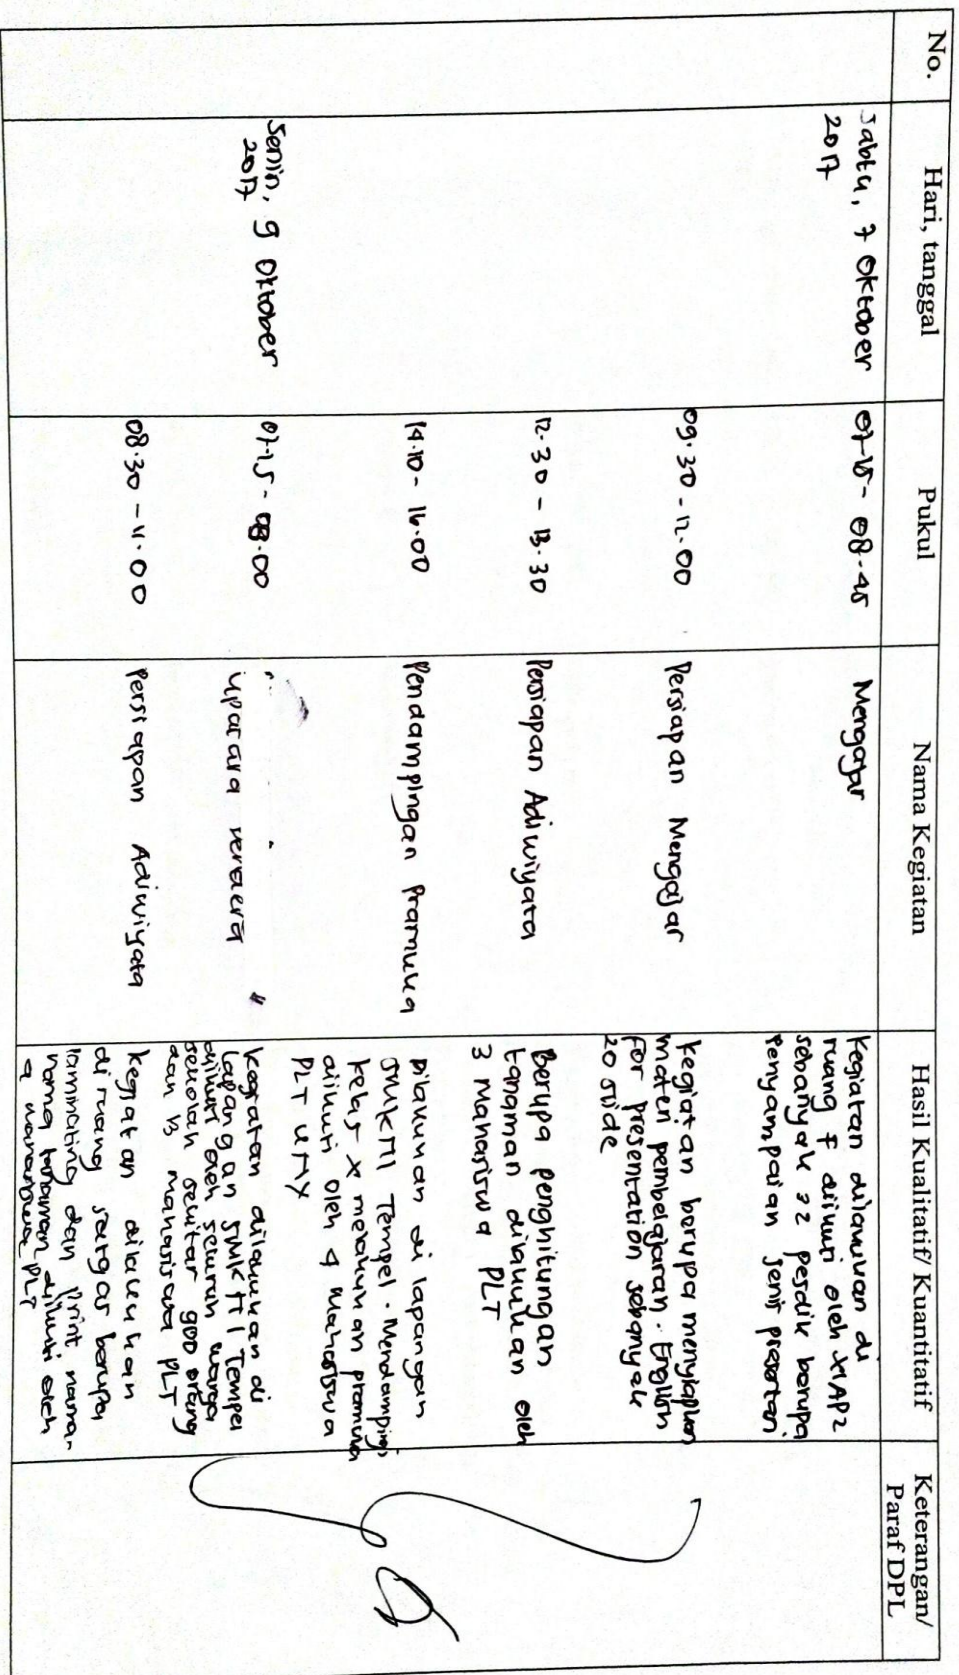 No.
Hari, tanggal
Pukul
Nama Kegiatan
Hasil Kualitatif/ Kuantitatif
Keterangan/
Paraf DPL
Sabtu, 7 Oktober
2017
07.15 - 08.45
Mengajar
Kegiatan dilakukan di
ruang F diikuti oleh XIAP2
sebanyak 32 pesdik berupa
penyampaian jenis presentasi
09.30 - 12.00
Persiapan Mengajar
Kegiatan berupa menyiapkan
materi pembelajaran. English
for presentation sebanyak
20 slide
12.30 - 13.30
Persiapan Adiwiyata
Berupa penghitungan
tanaman dilakukan oleh
3 Mahasiswa PLT
14.10 - 16.00
Pendampingan Pramuka
Dilakukan di lapangan
SMKN 1 Tempel. Mendampingi
kelas X melakukan pramuka
diikuti oleh 4 Mahasiswa
PLT UNY
Senin, 9 Oktober
2017
07.15 - 08.00
Upacara
Kegiatan dilakukan di
lapangan SMKN 1 Tempel
diikuti oleh seluruh warga
sekolah sekitar 900 orang
dan 13 mahasiswa PLT
08.30 - 11.00
Persiapan Adiwiyata
Kegiatan dilakukan
di ruang satgas berupa
laminating dan print nama-
nama tanaman diikuti oleh
mahasiswa PLT